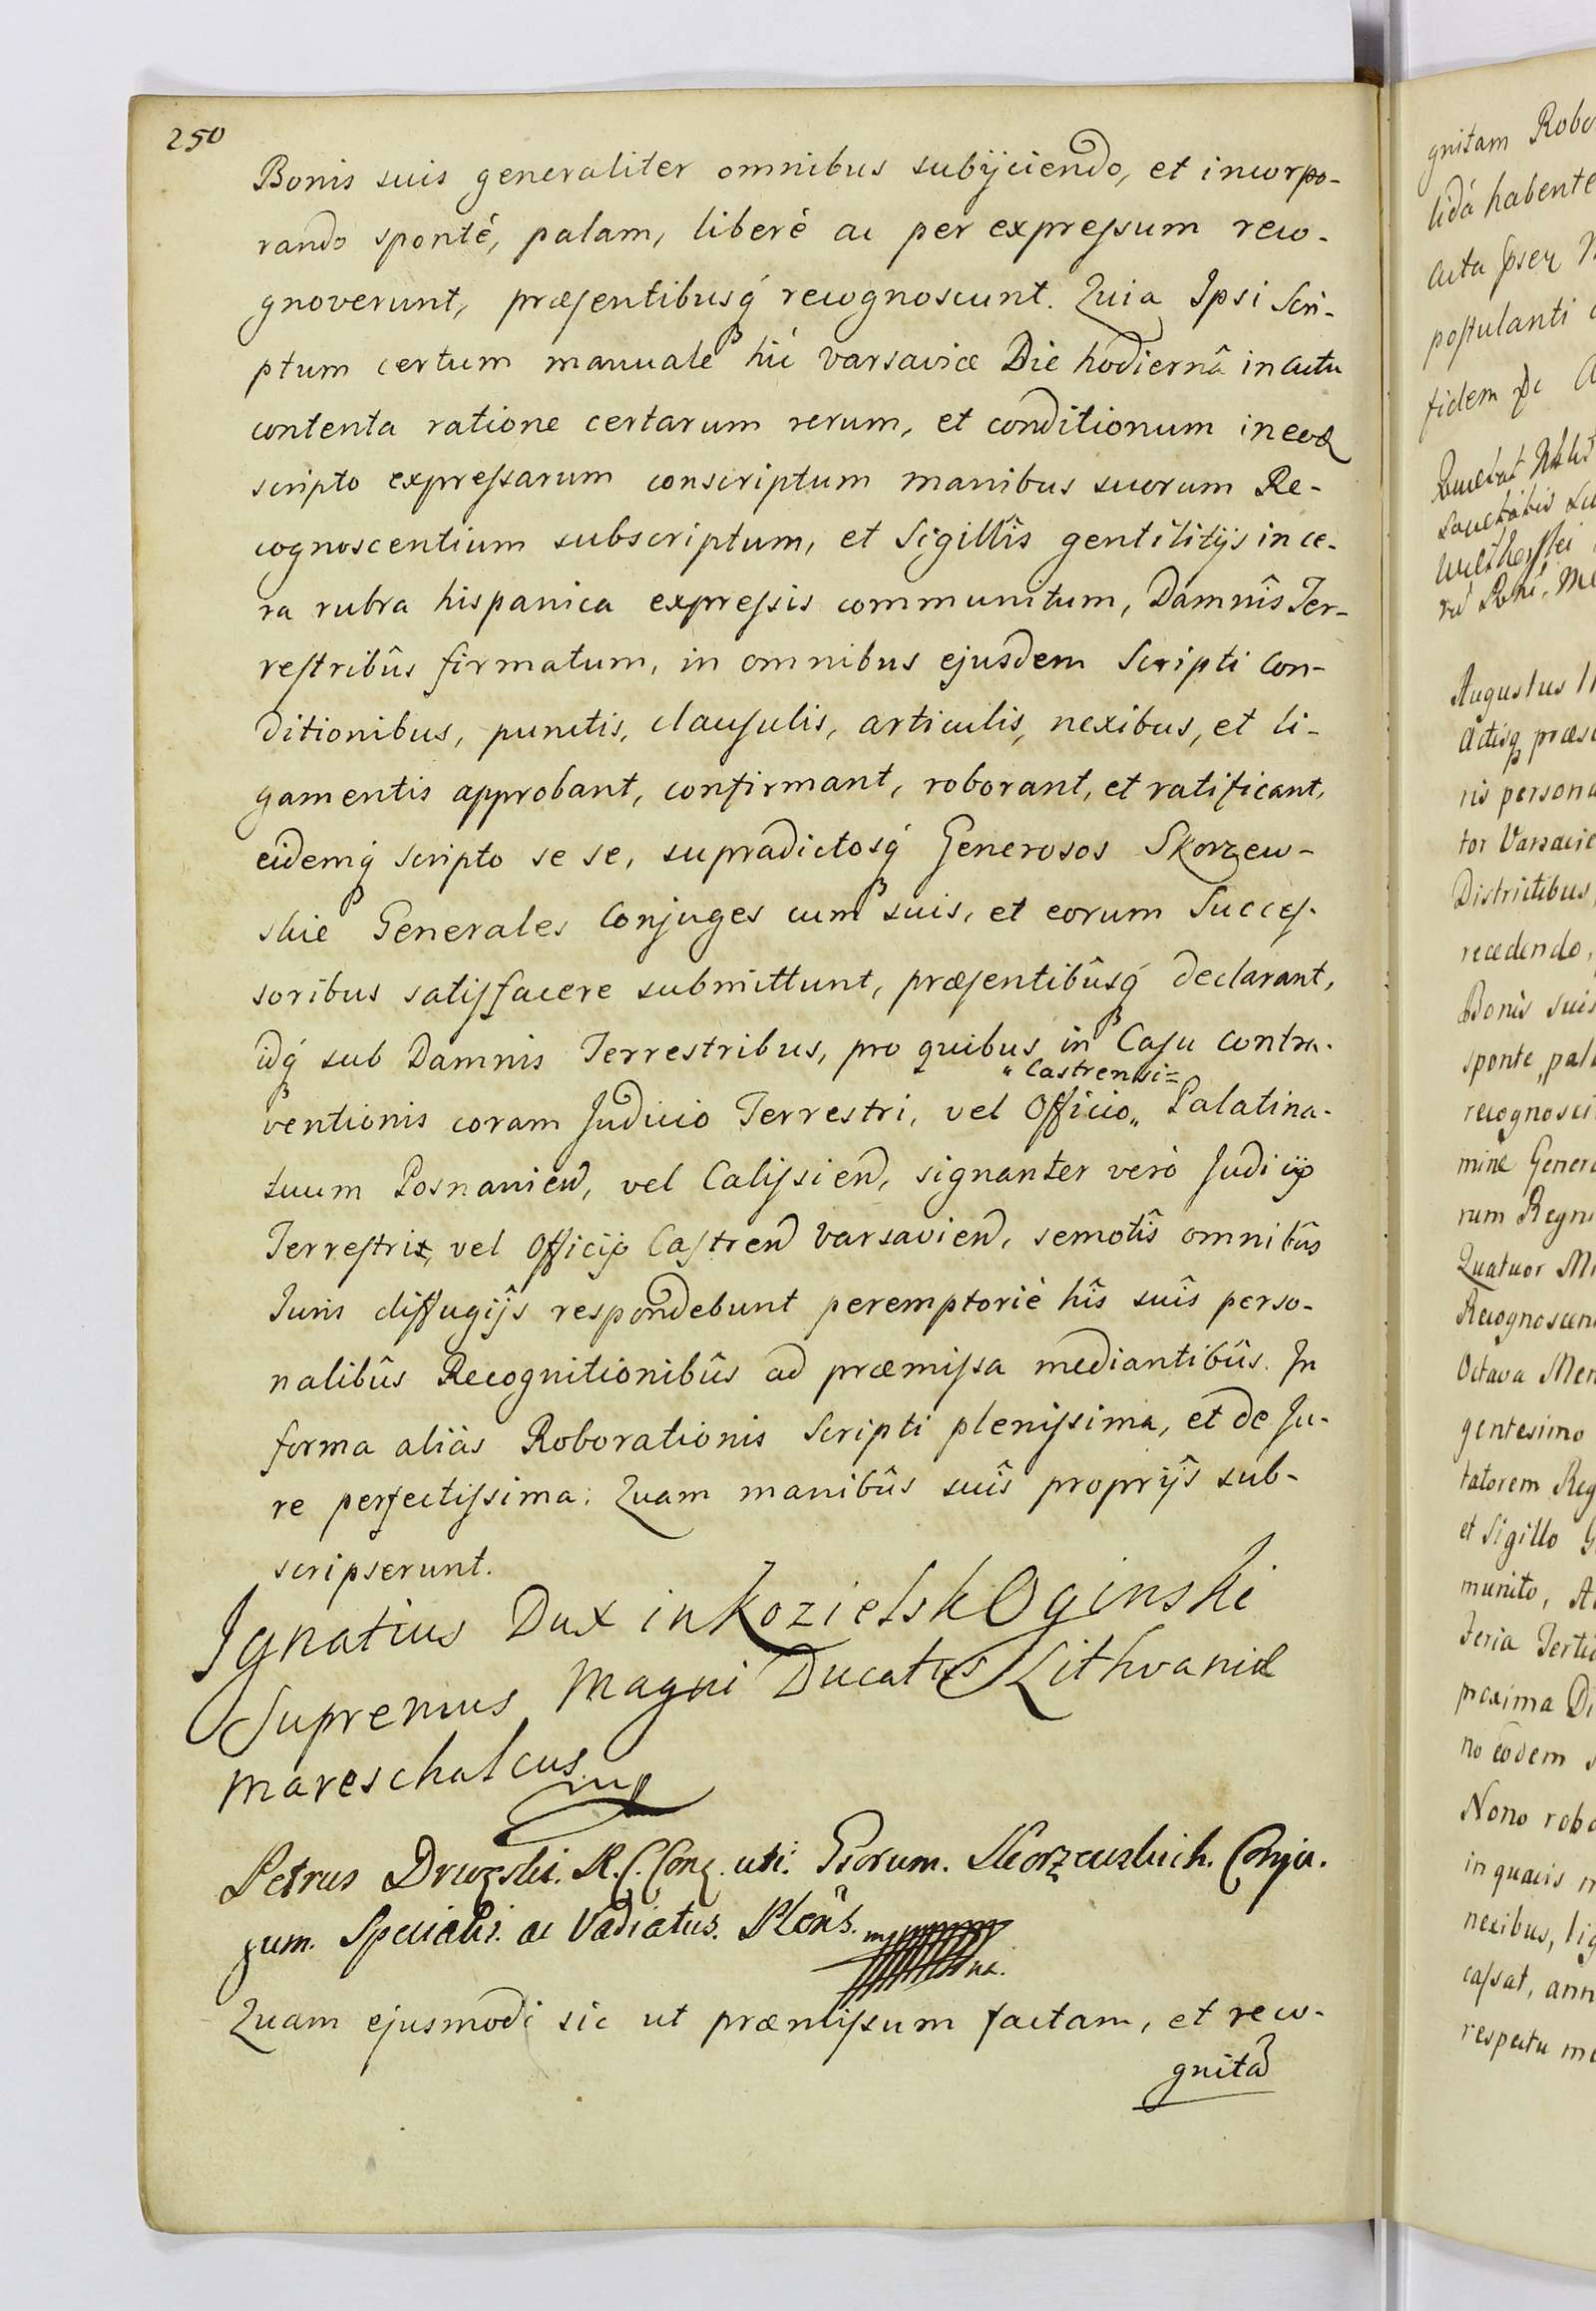 250
Bonis suis generaliter omnibus subijciendo, et incorpo-
rando sponté, palam, liberè ac per expressum reco-
gnoverunt, præsentibusq́ recognoscunt. Quia Ipsi Scri-
ptum certum manuale hic Varsaviæ Die hodiernâ in actu
contenta ratione certarum rerum, et conditionum in eod
scripto expressarum conscriptum manibus suorum Re-
cognoscentium subscriptum, et Sigillîs gentilitijs in ce-
ra rubra hispanica expressis communitum, Damnîs Ter-
restribûs firmatum, in omnibus ejusdem Scripti Con-
ditionibus, punctis, clausulis, articulis, nexibus, et li-
gamentis approbant, confirmant, roborant, et ratificant,
eidemq́ scripto se se, supradictosq́ Generosos Skorzew-
skie Generales Conjuges cum suis, et eorum Succes-
soribus satisfacere submittunt, præsentibûsq́ declarant,
idq́ sub Damnis Terrestribus, pro quibus in Casu contra-
"Castrensi=
ventionis coram Judicio Terrestri, vel Officio,, Palatina-
tuum Posnanien, vel Calissien, signanter verò Judicijo
Terrestris, vel Officijo Castren Varsavien, semotîs omnibûs
Juris diffugijs respondebunt peremptoriè hîs suîs perso-
nalibûs Recognitionibûs ad præmissa mediantibûs. In
forma aliàs Roborationis Scripti plenissima, et de Ju-
re perfectissima: Quam manibûs suîs proprijs sub-
scripserunt.
Ignatius Dux in Kozielsk Oginski
Supremus Magni Ducatus Lithvaniæ
Mareschalcus
Petrus Druzski. R. C. Conz. uti. Gsorum. Skorzewskich. Conju.
gum. Specialis. ac Vadiatus. Plen̄s.
Quam ejusmodi sic ut præmissum factam, et reco-
gnitã
gnitam Robo
lidà habente
acta
postulanti
fidem
Augustus II
Actisq præs
ris persona
tor Varsavie
Districtibus,
recedendo,
Bonis suis
sponte, pal
recognosci
mine Genero
rum Regni
Quatuor M
Recognoscen
Octava Men
gentesimo
tatorem Reg
et Sigillo G
munito, A
Feria Tertia
proxima Di
no eodem s
Nono robo
in quavis m
nexibus, lig
cassat, ann
respectu me